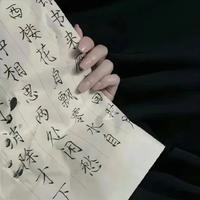 书来回
西楼花自飘零水自
相思两处闲愁
消除才下